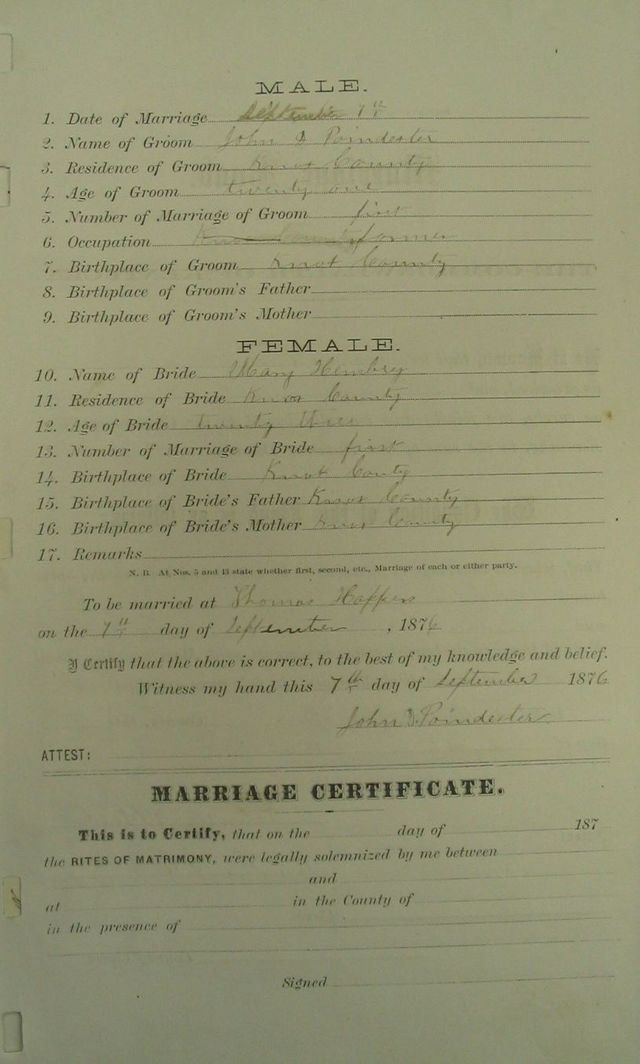 MALE.
1. Date of Marriage September 7th
2. Name of Groom John D Poindexter
3. Residence of Groom Knox County
4. Age of Groom twenty one
5. Number of Marriage of Groom first
6. Occupation Knox County farmer
7. Birthplace of Groom Knox County
8. Birthplace of Groom's Father
9. Birthplace of Groom's Mother
FEMALE.
10. Name of Bride Mary Hembry
11. Residence of Bride Knox County
12. Age of Bride twenty
13. Number of Marriage of Bride first
14. Birthplace of Bride Knox Couty
15. Birthplace of Bride's Father Knox County
16. Birthplace of Bride's Mother Knox County
17. Remarks
N. B. At Nos. 5 and 13 state whether first, second, etc., Marriage of each or either party.
To be married at Thomas Hoppers
on the 7th day of September, 1876
I Certify that the above is correct, to the best of my knowledge and belief.
Witness my hand this 7th day of September 1876
John D Poindexter
ATTEST:
MARRIAGE CERTIFICATE.
This is to Certify, that on the day of 187
the RITES OF MATRIMONY, were legally solemnized by me between
and
at in the County of
in the presence of
Signed